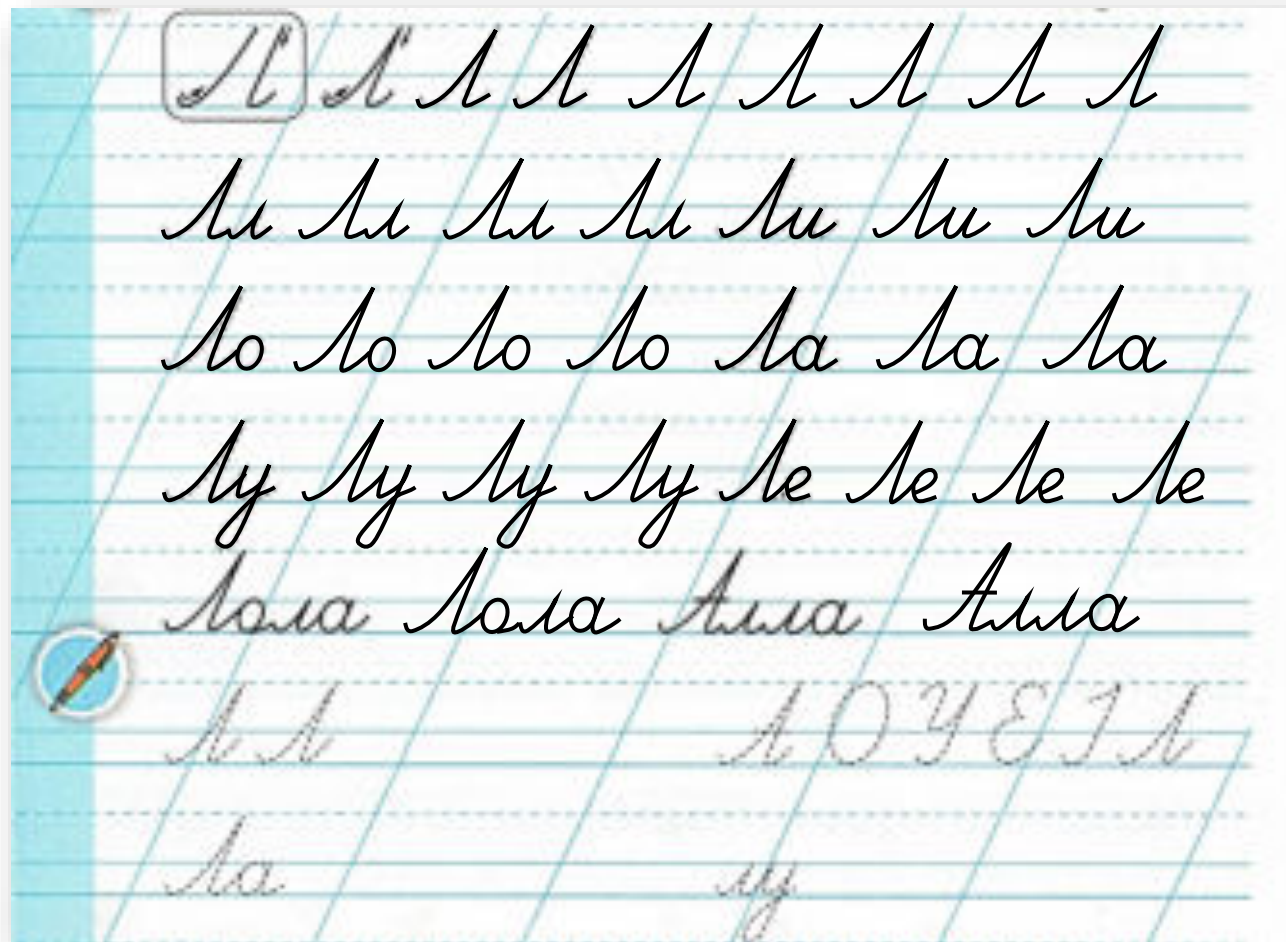 Л Л Л Л Л Л Л Л Л
Лл Лл Лл Лл Ли Ли Ли
Ло Ло Ло Ло Ла Ла Ла
Лу Лу Лу Лу Ле Ле Ле Ле
Лола Лола Алла Алла
Л Л А О У Е І Л
Ла лу